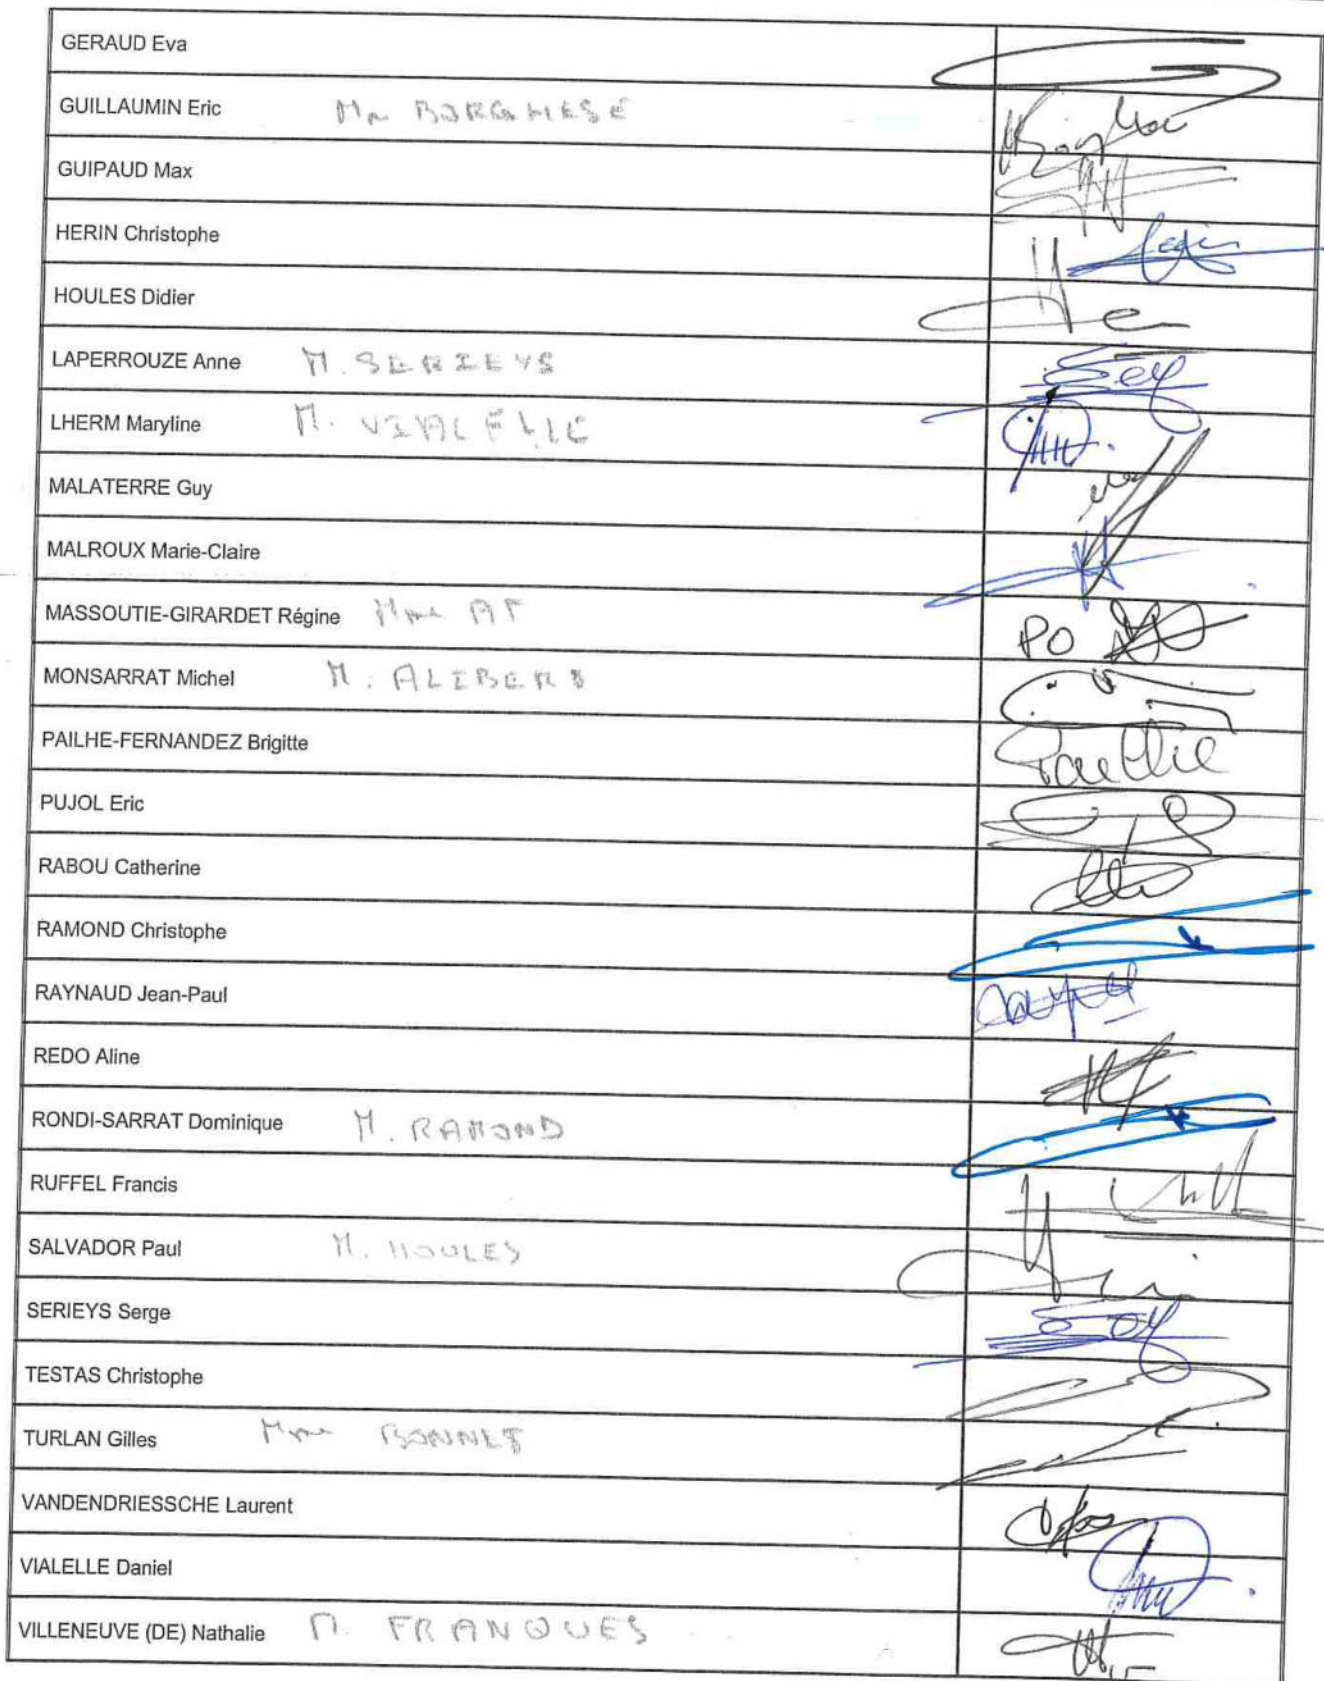 GERAUD Eva
GUILLAUMIN Eric Mr BORGHESE
GUIPAUD Max
HERIN Christophe
HOULES Didier
LAPERROUZE Anne M. SERIEYS
LHERM Maryline M. VIALELLE
MALATERRE Guy
MALROUX Marie-Claire
MASSOUTIE-GIRARDET Régine Mme PO
MONSARRAT Michel M. ALIBERT
PAILHE-FERNANDEZ Brigitte
PUJOL Eric
RABOU Catherine
RAMOND Christophe
RAYNAUD Jean-Paul
REDO Aline
RONDI-SARRAT Dominique M. RAMOND
RUFFEL Francis
SALVADOR Paul M. HOULES
SERIEYS Serge
TESTAS Christophe
TURLAN Gilles Mme BONNET
VANDENDRIESSCHE Laurent
VIALELLE Daniel
VILLENEUVE (DE) Nathalie M. FRANQUES